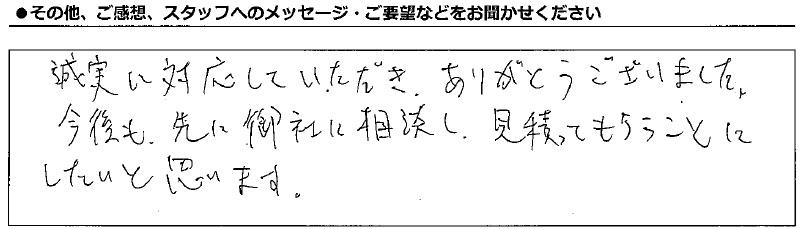 ●その他、ご感想、スタッフへのメッセージ・ご要望などをお聞かせください
誠実に対応していただき、ありがとうございました、
今後も、先に御社に相談し、見積ってもらうことに
したいと思います。